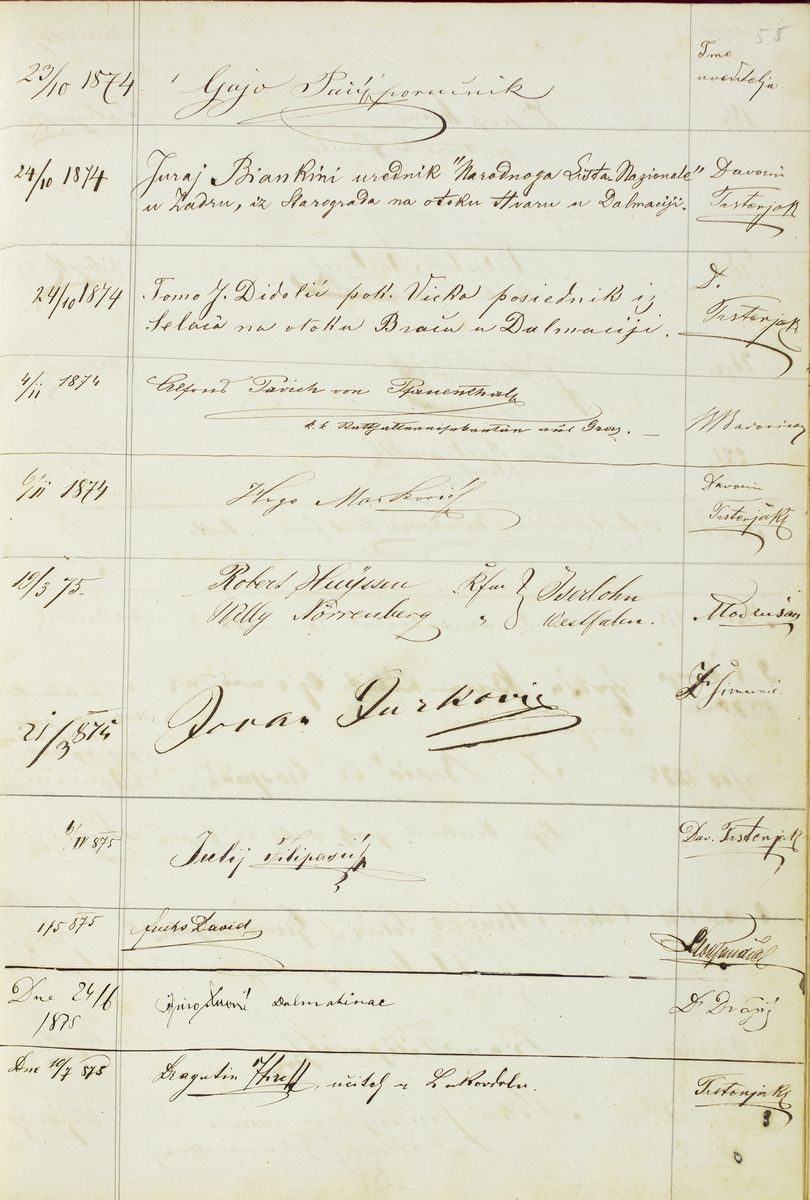 58
Ime
uvoditelja
23/10 1874 Gajo Pajić poručnik
24/10 1874 Juraj Biankini urednik "Narodnoga Lista-Nazionale" Davorin
u Zadru, iz Starograda na otoku Hvaru u Dalmaciji. Trstenjak
24/10 1874 Tomo J. Didolić pok. Vicka posiednik iz D.
Selaca na otoku Braču u Dalmaciji. Trstenjak
4/11 1874 Alfons Pavich von Pfauenthal
k. k. aus Graz.
6/11 1874 Hugo Marković Davorin
Trstenjak
19/3 75. Robert Huÿssen Kfm Iserlohn
Willy Nörrenberg " Westfalen.
21/3 875 Jovan Jurković Šimunić
6/IV 875 Julij Filipašić Dav. Trstenjak
1/5 875 Fuchs David
Dne 24/6 Dalmatinac Dr Dražić
1875
Dne 10/7 875 Dragutin Hirc, učitelj u Lukovdolu. Trstenjak